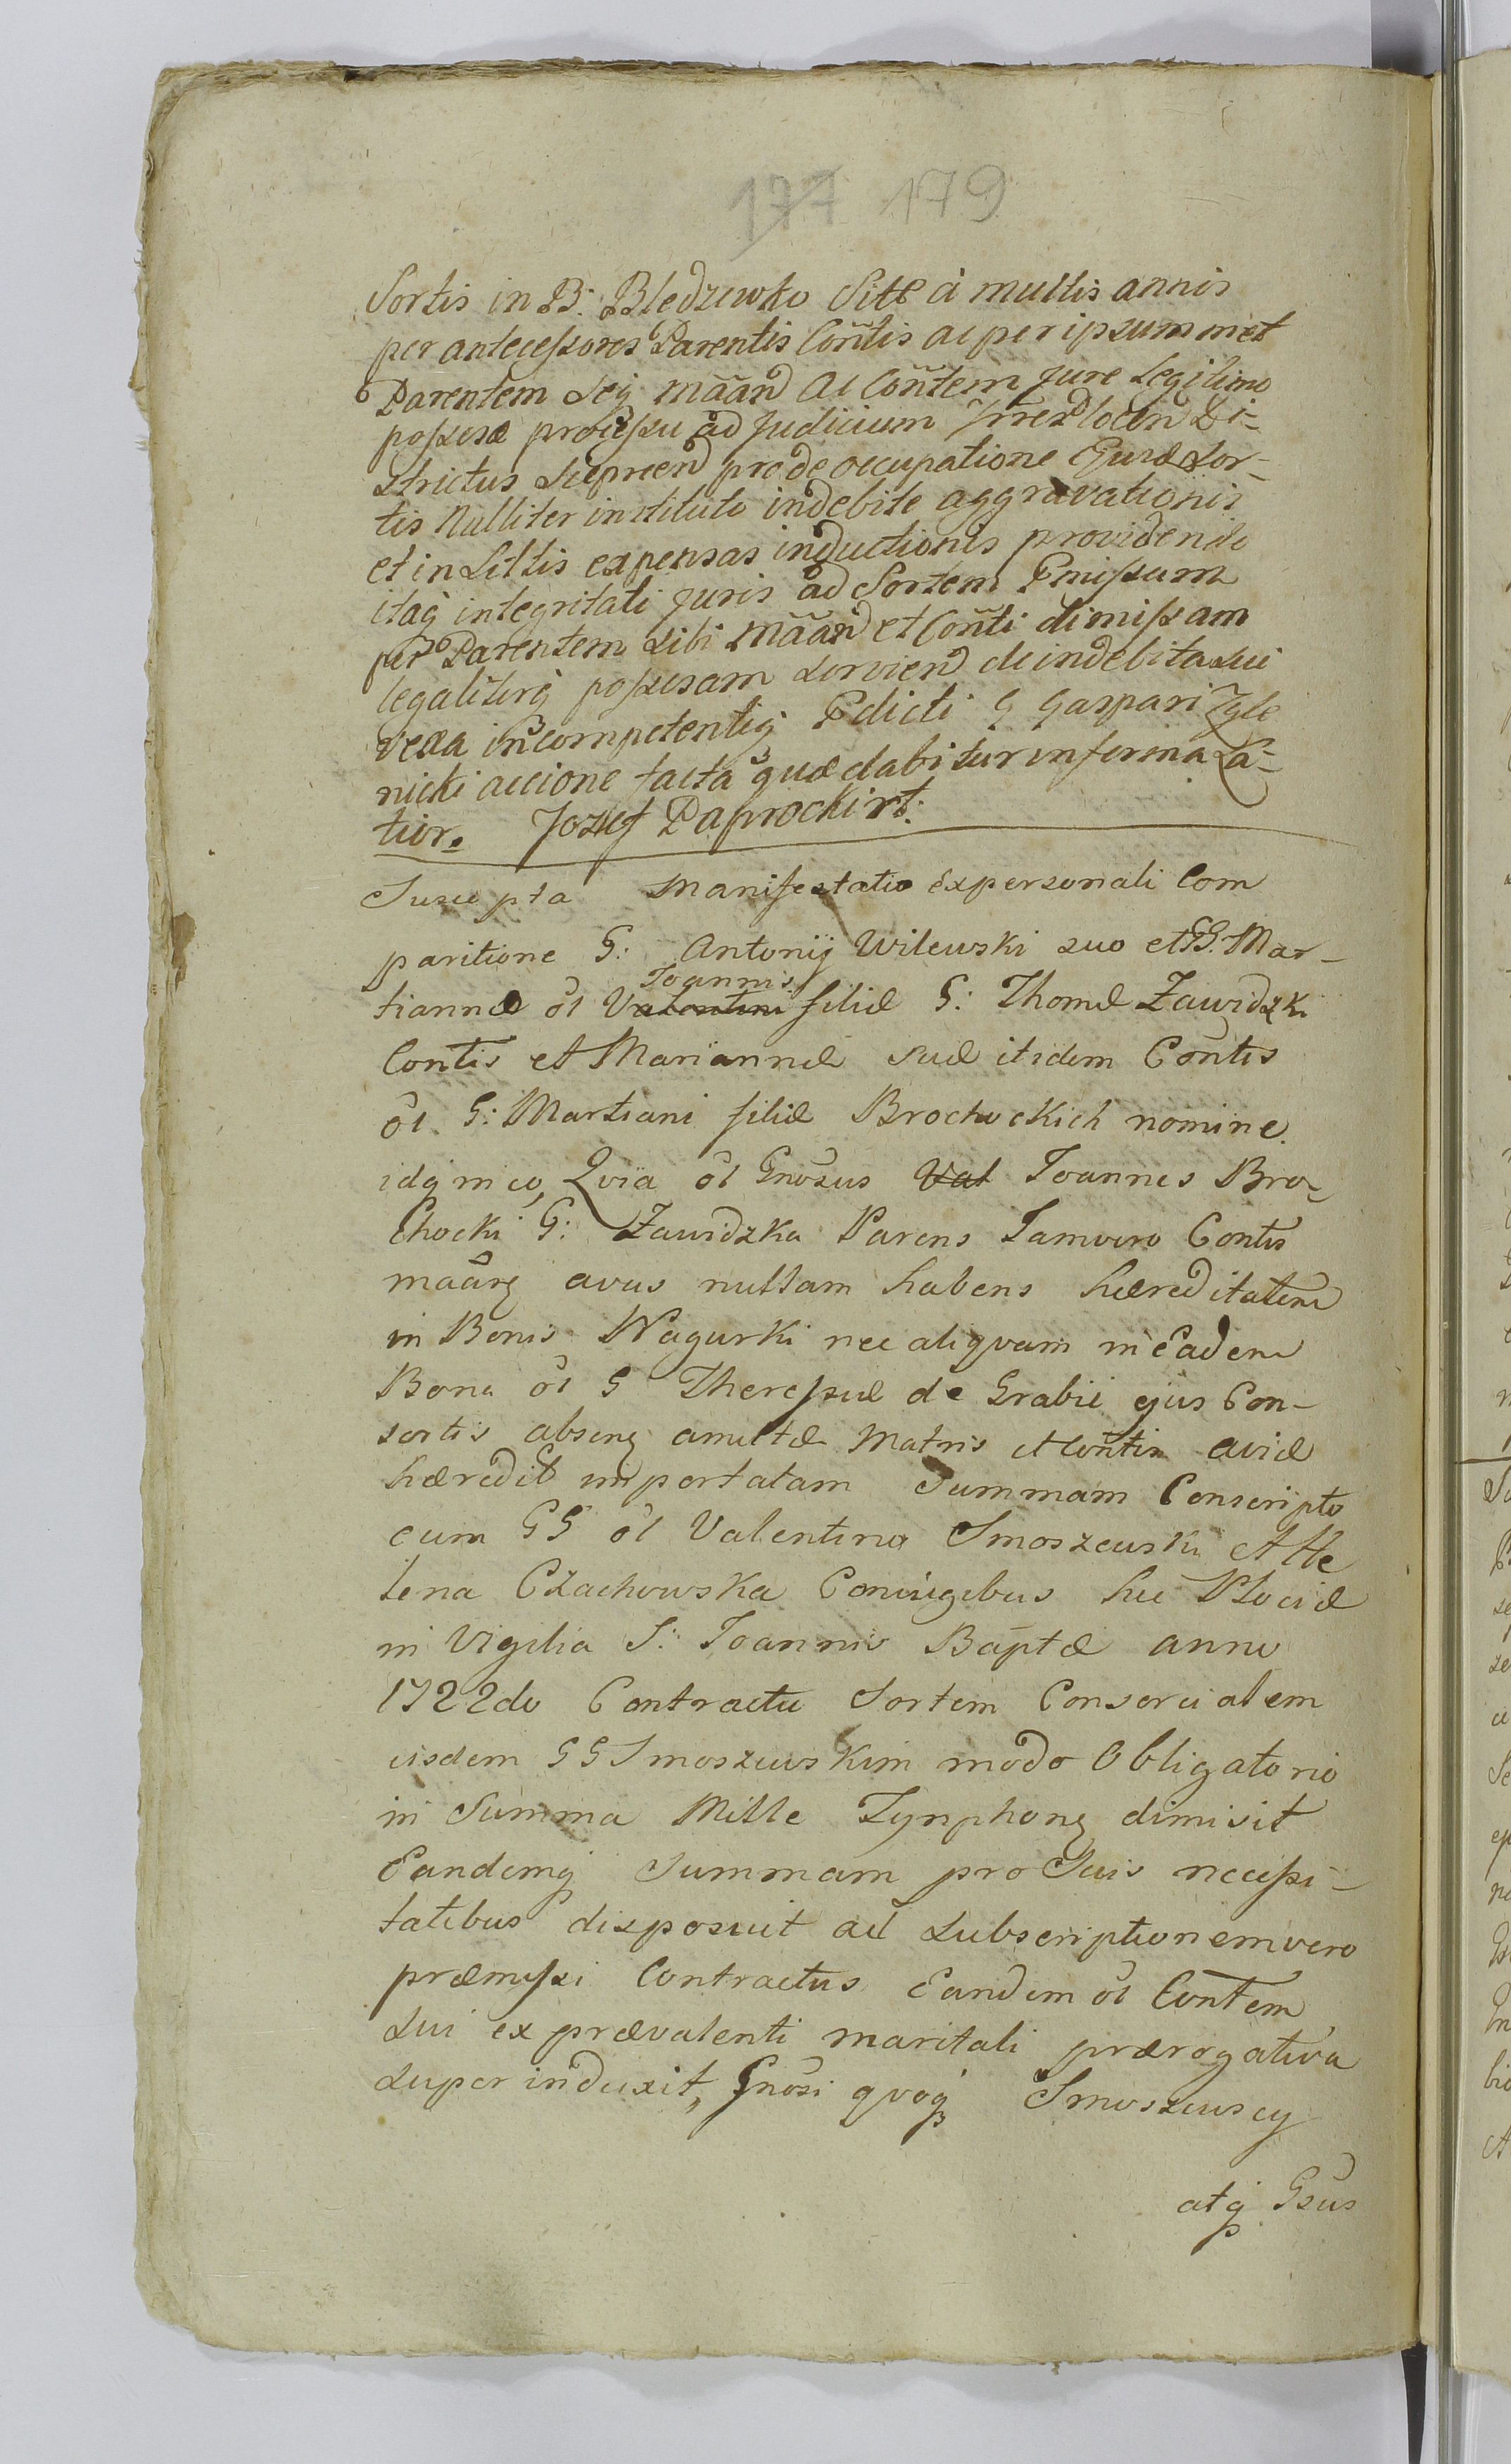 177 179
Sortis in B: Bledzewko Sitæ à multis annis
per antecessores Parentis Coñtis ac per ipsummet
Parentem Seq mããnd ac Coñtem Jure Legitimo
possesæ processu ad Judicium District
strictus Sieprcen̄ pro de occupatione Ejusd Sor-
tis Nulliter instituto indebite aggravationis
et in Littis expensas inductionis providendo
itaq integritati juris ad Sortem Pmissum
per Parentem sibi mããnd et Coñti dimissam
legaliterq possesam servien̄ de indebita sui
vexa incompetentiq Edicti G Gaspari Zgle
nicki accione facta quæ dabitur in forma La-
tior. Jozef Paprocki rt.
Suscepta Manifestatio ex personali Com
paritione G: Antonij Wilewski suo et GG. Mar-
Joannis
tiannæ ol Valentini filiæ G: Thomæ Zawidzki
Contis et Mariannæ suæ itidem Contis
ol G: Martiani filiæ Brochockich nomine
idq in eo, Qvia ol Gnosus Val Joannes Bro-
chocki G: Zawidzka Parens Jamvero Contis
mããrq avus nullam habens hæreditatem
in Bonis Nagurki nec aliqvam in Eadem
Bona ol G Theressæ de Grabie ejus Con-
sortis absenq amitæ Matris et Contis aviæ
hæredit importatam Summam Conscripto
cum GG ol Valentino Smoszewski et He
lena Czachowska Conjugibus hic Plociæ
in Vigilia S: Joannis Baptæ anno
1722do Contractu Sortem Consorcialem
iisdem GG Smoszewskim modo Obligatorio
in Summa Mille Tynphonq dimisit
Eandemq Summam pro Suis necessi-
tatibus disposuit ad Subscriptionem vero
præmissi Contractus Eandem ol Contem
Sui ex prævalenti maritali prærogativa
superinduxit, Gnosi qvoq Smoszewscy
atq Gsus